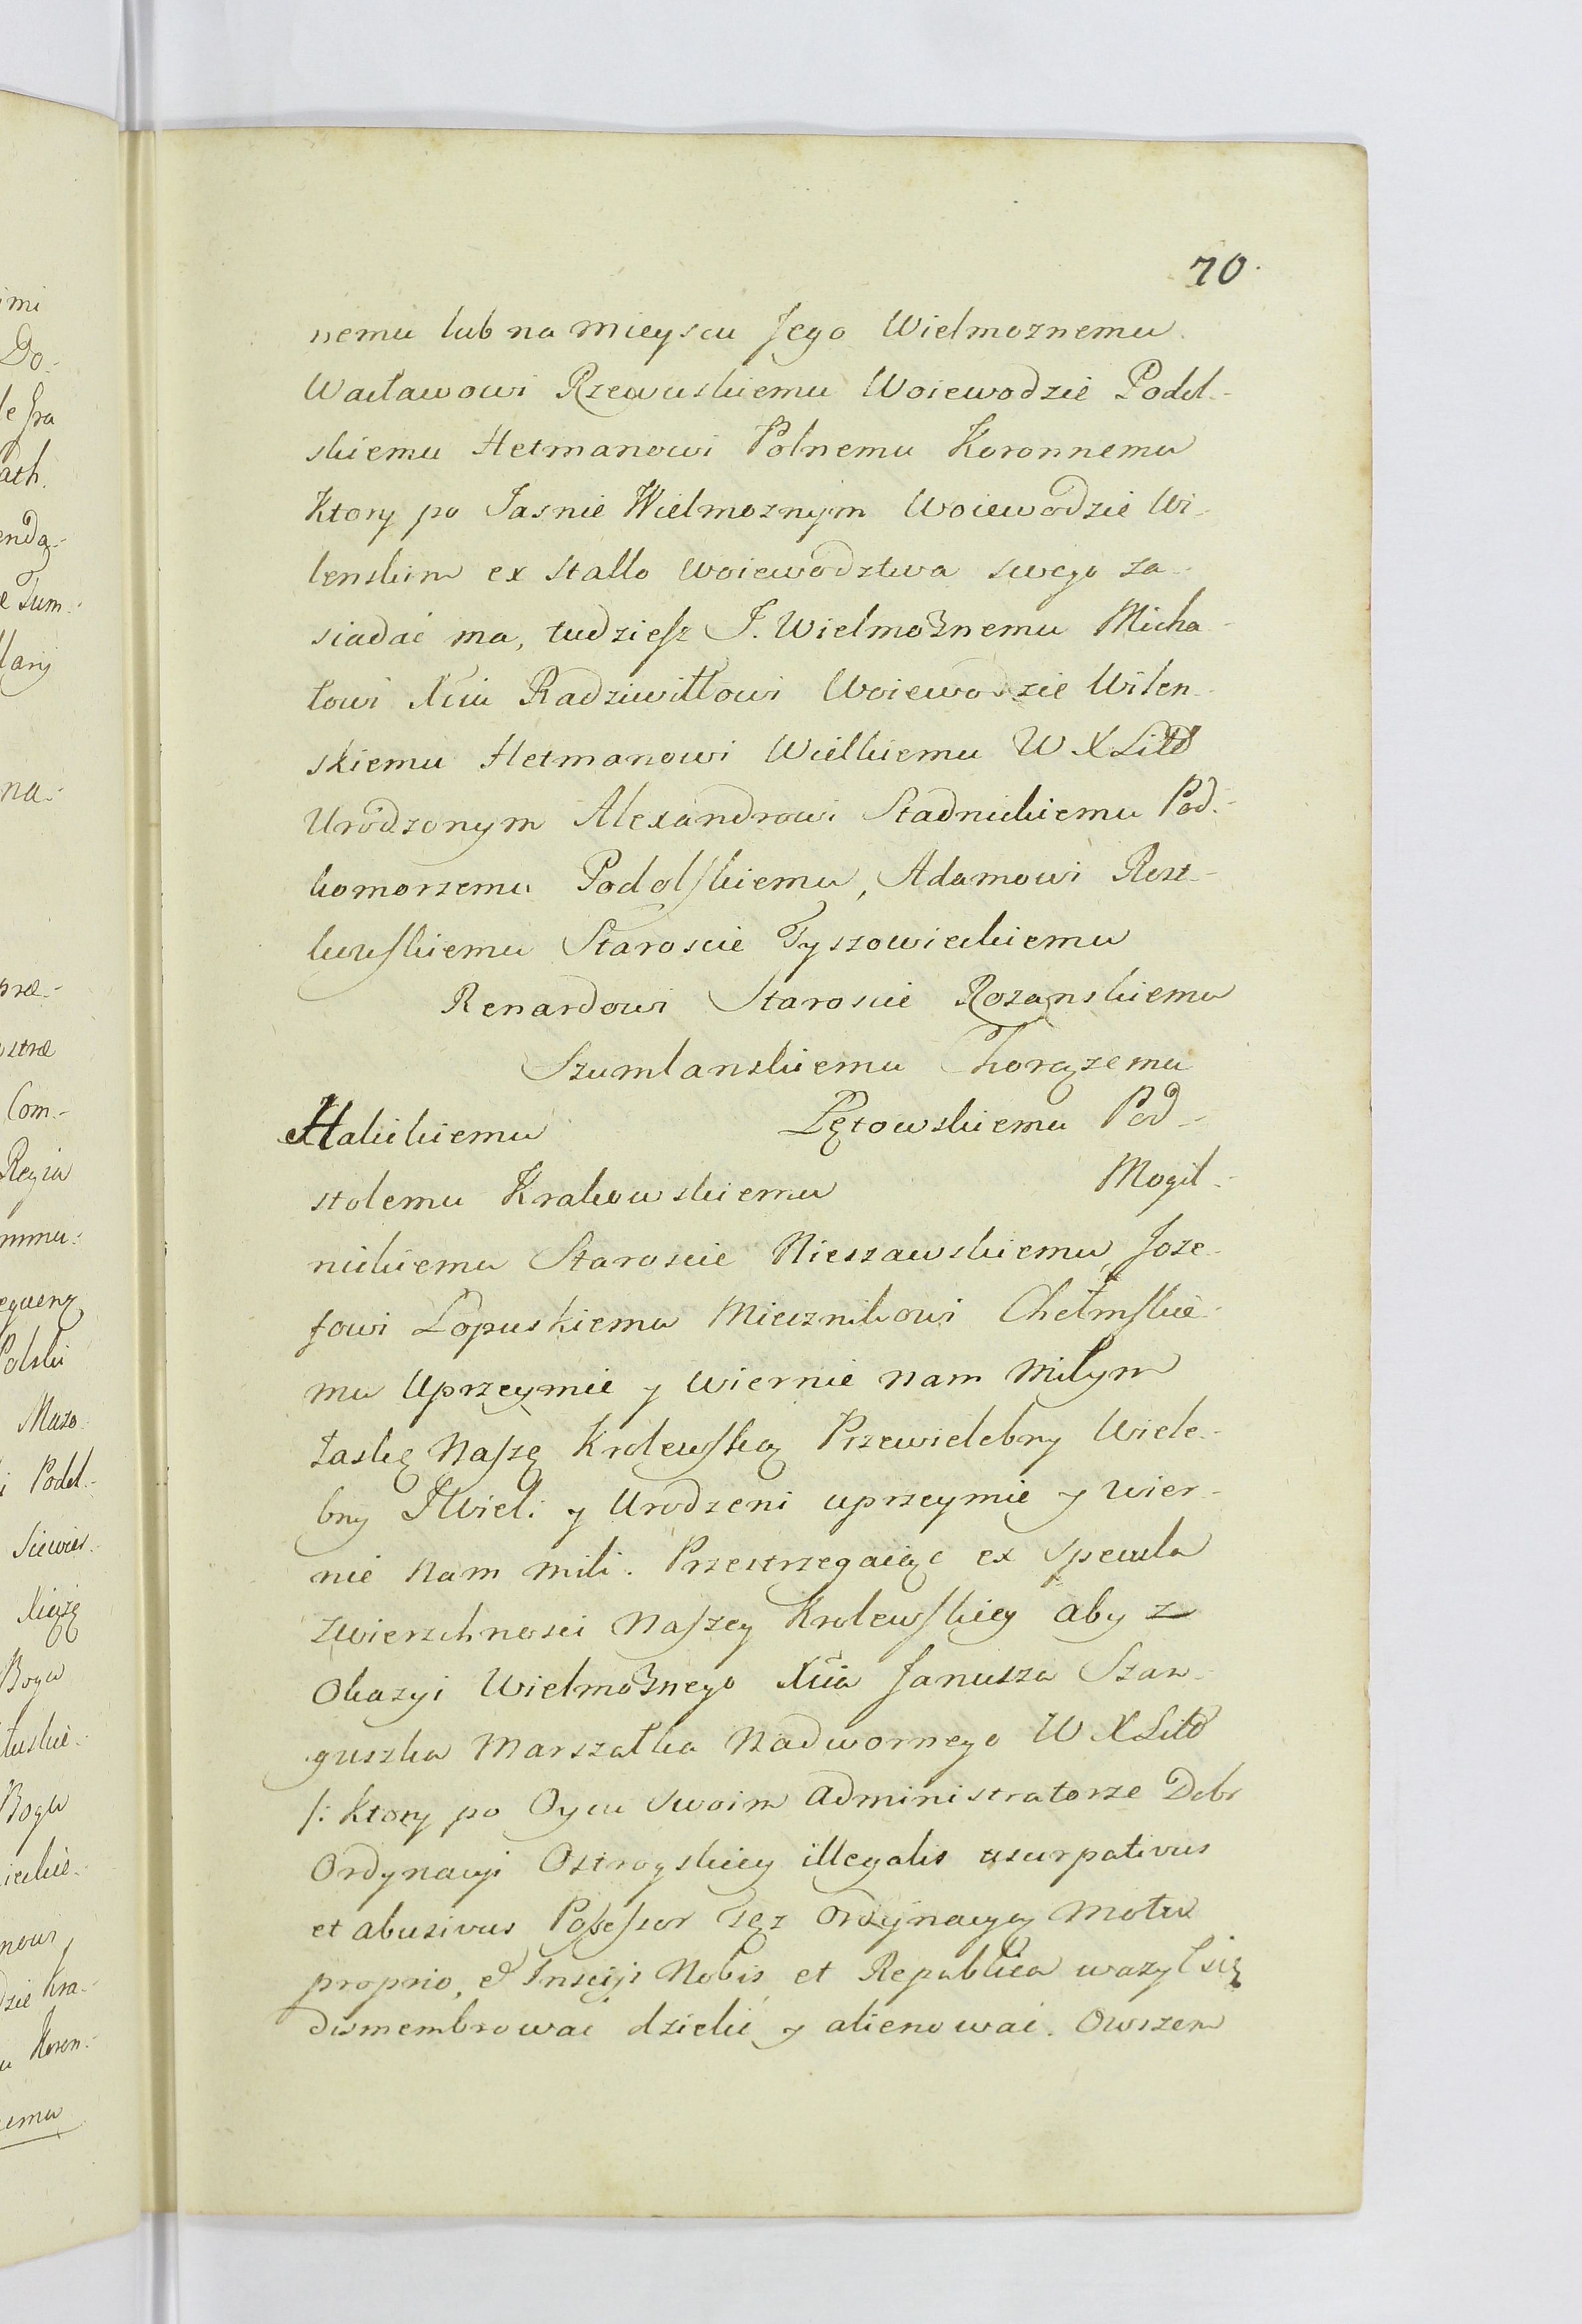 70.
nemu lub na mieyscu Jego Wielmoznemu
Wacławowi Rzewuskiemu Woiewodzie Podol-
skiemu Hetmanowi Polnemu Koronnemu
Ktory po Jasnie Wielmoznym Woiewodzie Wi-
lenskim ex stallo Woiewodztwa swego za-
siadać ma, tudziesz J. Wielmożnemu Micha-
łowi Xciu Radziwiłłowi Woiewodzie Wilen-
skiemu Hetmanowi Wielkiemu W X Litt
Urodzonym Alexandrowi Stadnickiemu Pod-
komorzemu Podolskiemu, Adamowi Rost-
kowskiemu Staroscie Tyszowieckiemu
Renardowi Staroscie Rozanskiemu
Szumlanskiemu Chorązemu
Halickiemu Łętowskiemu Pod-
stolemu Krakowskiemu Mogil-
nickiemu Staroscie Nieszawskiemu, Joze-
fowi Łopuskiemu Miecznikowi Chełmskie-
mu Uprzeymie y wiernie nam miłym
łaskę Naszę Krolewską Przewielebny Wiele-
bny JWiel: y Urodzeni uprzeymie y wier-
nie nam mili. Przestrzegaiąc ex specula
zwierzchnosci Naszey Krolewskiey aby z
Okazyi Wielmożnego Xcia Janusza San-
guszka Marszałka Nadwornego W X Litt
/: Ktory po Oycu swoim Administratorze Dobr
Ordynacyi Ostrogskiey illegalis usurpativus
et abusivus Possessor tęz Ordynacyą Motu
proprio, & Insciis Nobis et Republica wazył się
dismembrowac dzielic y alienowac. Owszem
mi
Do-
le Jra
ath.
enda-
e Sum-
lary
na-
præ-
stræ
Com-
Regia
mmu-
equenz
Polski
Mazo-
i Podol-
Siewier-
Xiążę
Boga
tuskie-
Boga
ieckie-
nowi
dzie Kra-
u Koron-
emu